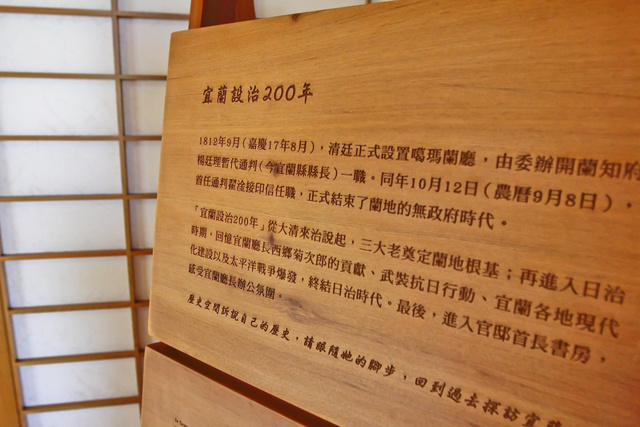 宜蘭設治200年
1812年9月(嘉慶17年8月)，清廷正式設置噶瑪蘭廳，由委辦開蘭知府
楊廷理暫代通判(今宜蘭縣縣長)一職。同年10月12日(農曆9月8日)，
首任通判翟淦接印信任職，正式結束了蘭地的無政府時代。
「宜蘭設治200年」從大清來治說起，三大老奠定蘭地根基；再進入日治
時期，回憶宜蘭廳長西鄉菊次郎的貢獻、武裝抗日行動、宜蘭各地現代
化建設以及太平洋戰爭爆發，終結日治時代。最後，進入官邸首長書房，
感受宜蘭廳長辦公氛圍。
歷史空間訴說自己的歷史，請跟隨她的腳步，回到過去探訪宜